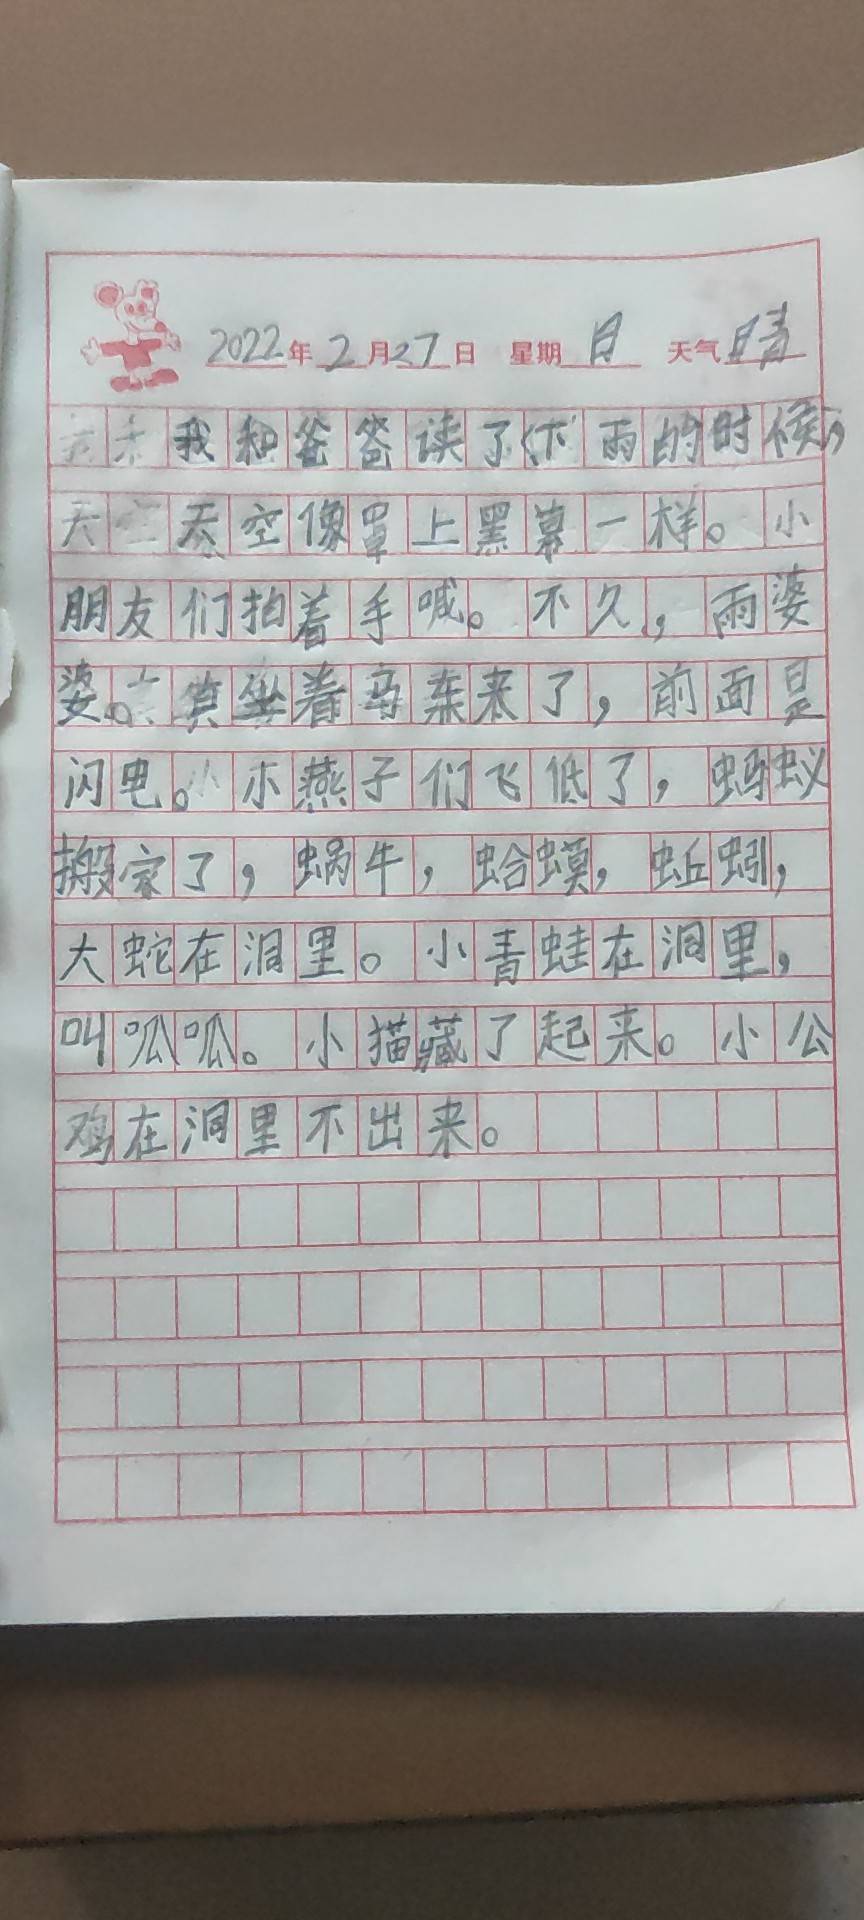 2022年2月27日 星期日 天气晴
我和爸爸读了《下雨的时候》
天空像罩上黑幕一样。小
朋友们拍着手喊。不久，雨婆
婆。着马车来了，前面是
闪电。小燕子们飞低了，蚂蚁
搬家了，蜗牛，蛤蟆，蚯蚓，
大蛇在洞里。小青蛙在洞里，
叫呱呱。小猫藏了起来。小公
鸡在洞里不出来。